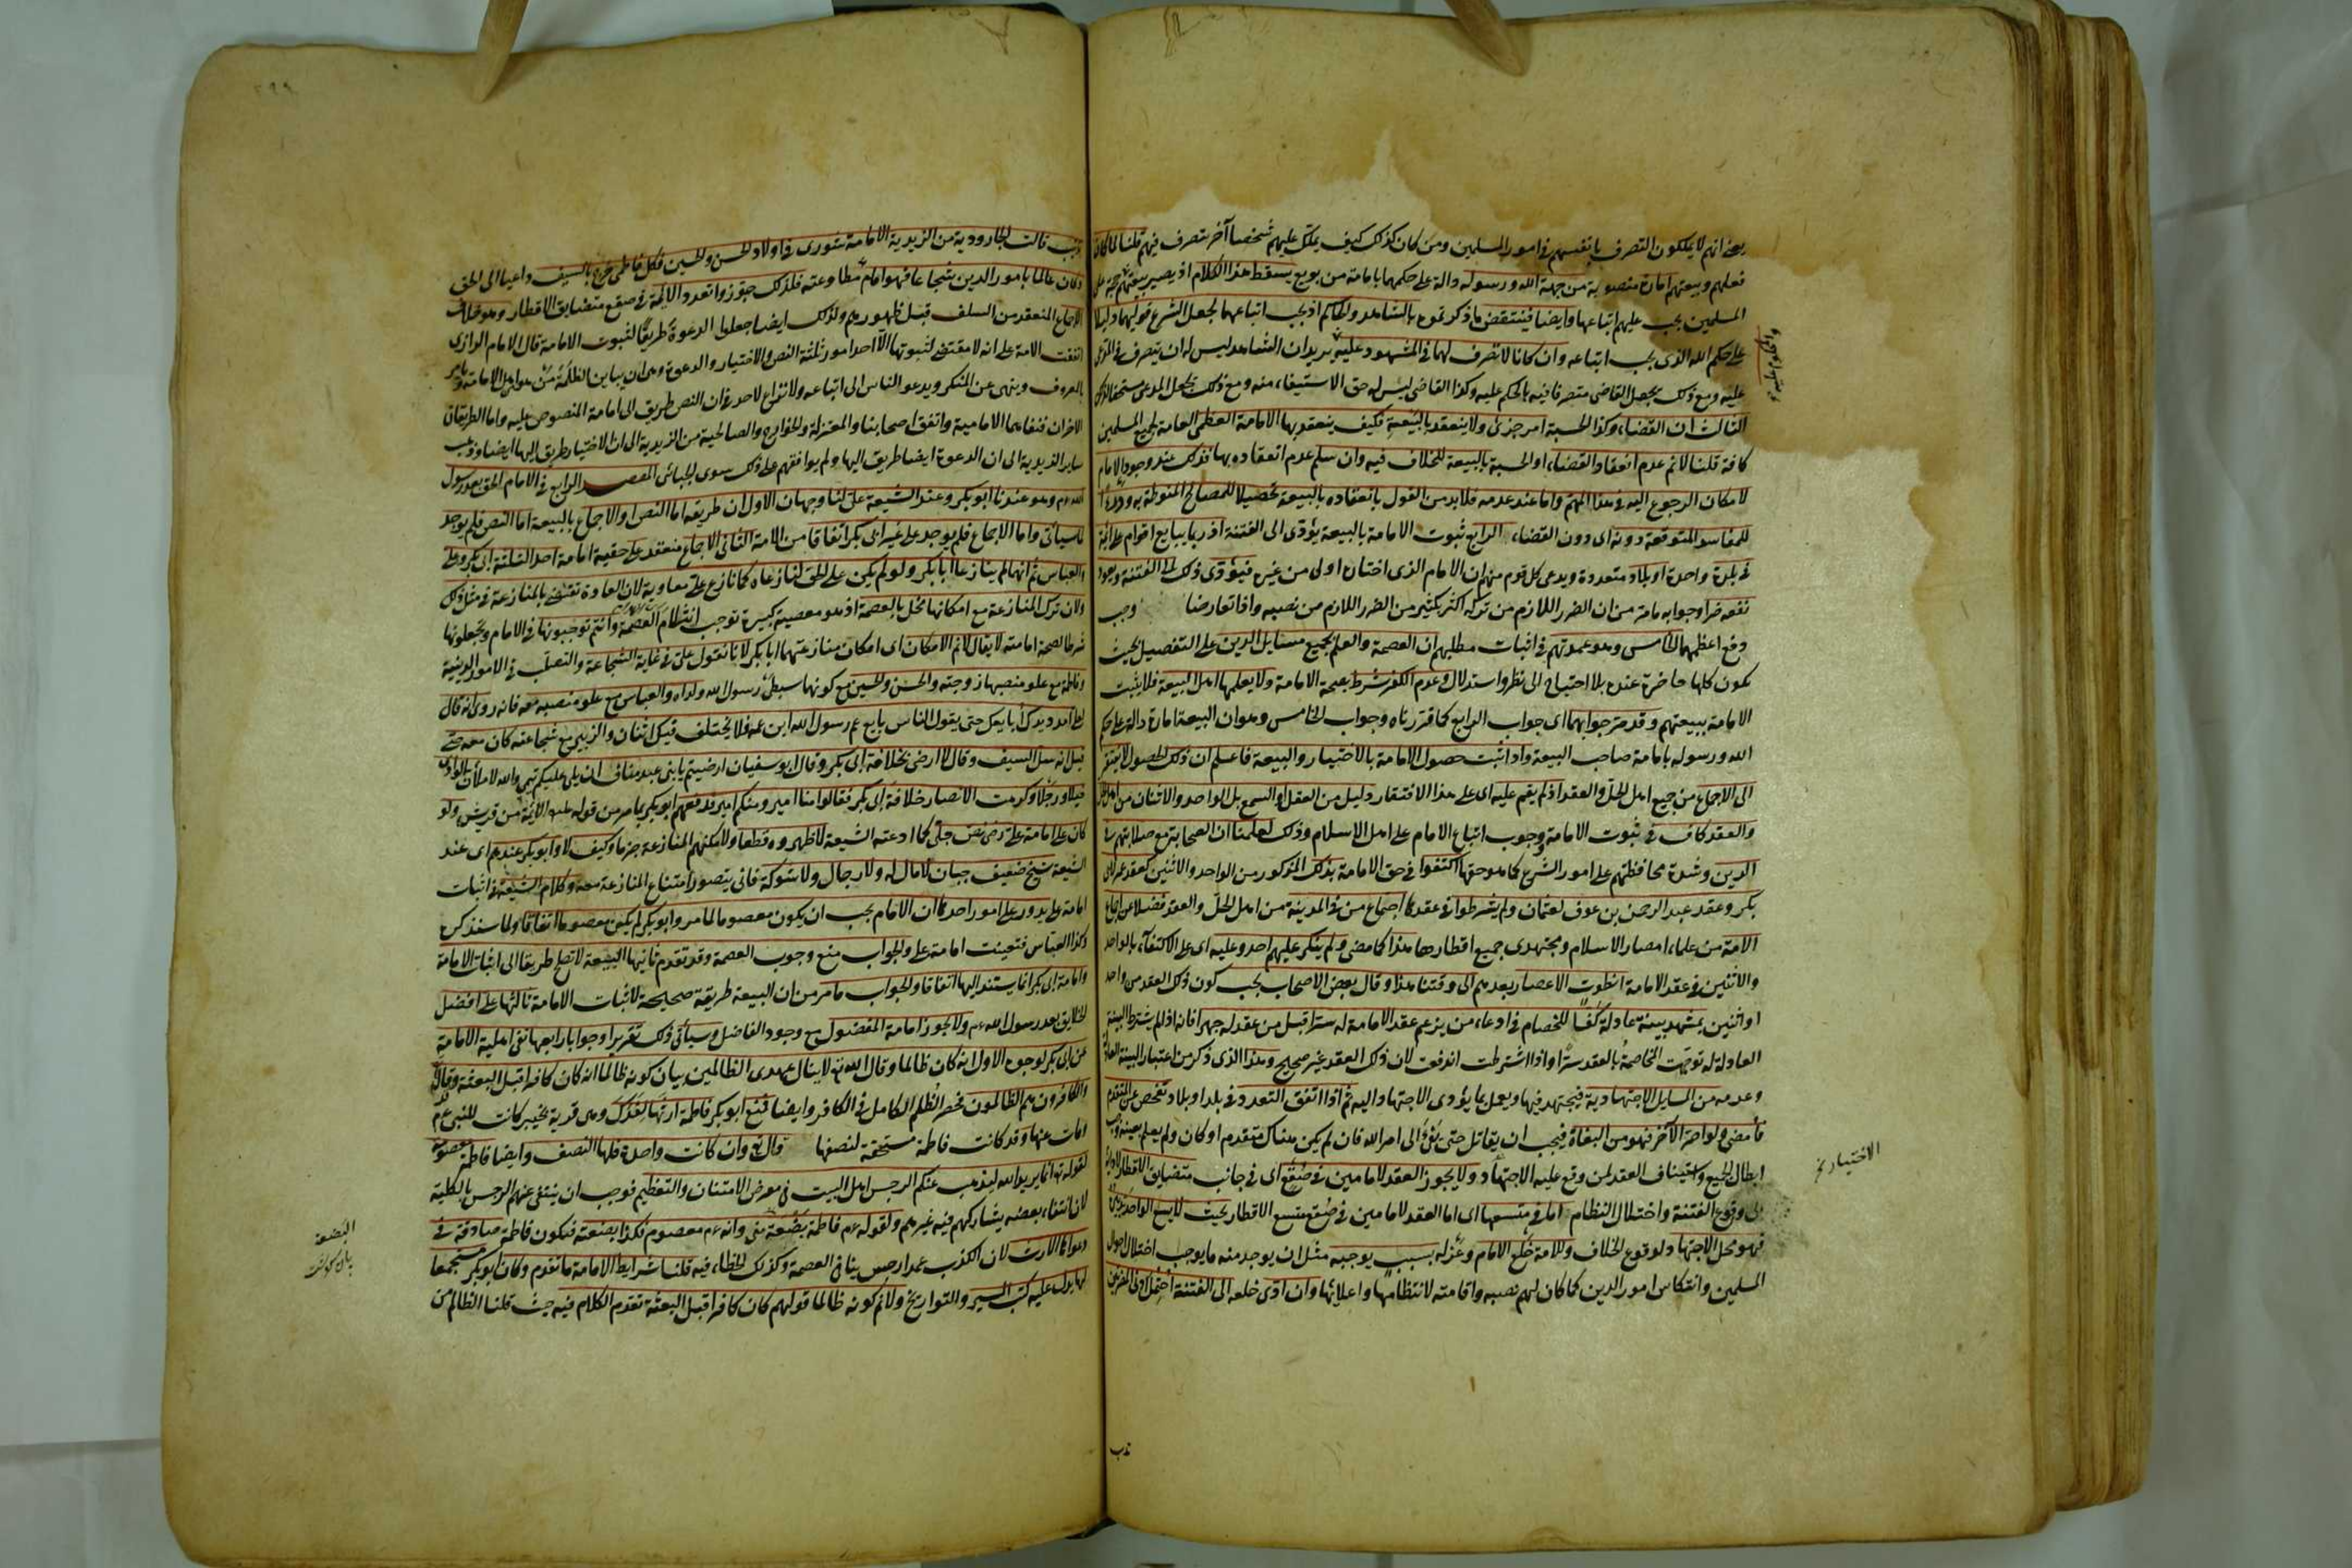 يعنى انهم لا يملكون التصرف بانفسهم فى امور المسلمين ومن كان كذلك كيف يملك عليهم شخصا آخر يتصرف فيهم قلنا لما كان
فعلهم وبيعتهم امارة منصوبة من جهة الله ورسوله دالة على حكمهما بامامة من بويع يسقط هذا الكلام اذ يصير بيعتهم حجة على
المسلمين يجب عليهم اتباعها وايضا فينتقض ما ذكرتموه بالشاهد والحاكم اذ يجب اتباعهما لجعل الشرع قولهما دليلا
على حكم الله الذى يجب اتباعه وان كانا لا تصرف لهما فى المشهود عليه يريد ان الشاهد ليس له ان يتصرف فى المدعى
عليه ومع ذلك يجعل القاضى متصرفا فيه بالحكم عليه وكذا القاضى ليس له حق الاستيفاء منه ومع ذلك يجعل المدعى مستحقا لذلك
الثالث ان القضاء وكذا الحسبة امر جزئى ولا ينعقد بالبيعة فكيف ينعقد بها الامامة العظمى العامة لجميع المسلمين
كافة قلنا لا نم عدم انعقاد القضاء او الحسبة بالبيعة للخلاف فيه وان سلم عدم انعقاده بها فذلك عند وجود الامام
لامكان الرجوع اليه فى هذا المهم واما عند عدمه فلا بد من القول بانعقاده بالبيعة تحصيلا للمصالح المنوطة به ودرءا
للمفاسد المتوقعة دونه اى دون القضاء الرابع ثبوت الامامة بالبيعة يؤدى الى الفتنة اذ ربما يبايع اقوام على ائمة
فى بلدة واحدة او بلاد متعددة ويدعى كل قوم منهم ان الامام الذى اختاره اولى من غيره فيؤدى ذلك الى الفتنة ويعود
نفعه ضرا وجوابه مامر من ان الضرر اللازم من تركه اكثر بكثير من الضرر اللازم من نصبه واذا تعارضا وجب
دفع اعظمهما الخامس وهو عمدتهم فى اثبات مطلبهم ان العصمة والعلم بجميع مسايل الدين على التفصيل بحيث
يكون كلها حاضرة عنده بلا احتياج الى نظر واستدلال وعدم الكفر شرط لصحة الامامة ولا يعلمها اهل البيعة فلا يثبت
الامامة ببيعتهم وقد مر جوابهما اى جواب الرابع كما قررناه وجواب الخامس وهو ان البيعة امارة دالة على حكم
الله ورسوله بامامة صاحب البيعة واذا ثبت حصول الامامة بالاختيار والبيعة فاعلم ان ذلك الحصول لا يفتقر
الى الاجماع من جميع اهل الحل والعقد اذ لم يقم عليه اى على هذا الافتقار دليل من العقل او السمع بل الواحد والاثنان من اهل الحل
والعقد كاف فى ثبوت الامامة ووجوب اتباع الامام على اهل الاسلام وذلك لعلمنا ان الصحابة مع صلابتهم فى
الدين وشدة محافظتهم على امور الشرع كما هو حقها اكتفوا فى حق الامامة بذلك المذكور من الواحد والاثنين كعقد عمر لابى
بكر وعقد عبد الرحمن بن عوف لعثمان ولم يشترطوا فى عقدها اجتماع من فى المدينة من اهل الحل والعقد فضلا عن اجماع
الامة من علماء امصار الاسلام ومجتهدى جميع اقطارها هذا كما مضى ولم ينكر عليهم احد وعليه اى على الاكتفاء بالواحد
والاثنين فى عقد الامامة انطوت الاعصار بعدهم الى وقتنا هذا وقال بعض الاصحاب يجب كون ذلك العقد من واحد
او اثنين بمشهد بينة عادلة كفا للخصام فى ادعاء من يزعم عقد الامامة له سرا قبل من عقد له جهرا فانه اذا لم يشترط البينة
العادلة له توجهت المخاصمة بالعقد سرا واذا اشترطت اندفعت لان ذلك العقد غير صحيح وهذا الذى ذكر من اعتبار البينة العادلة
وعدمه من المسايل الاجتهادية فيجتهد فيها ويعمل بما يؤدى الاجتهاد اليه ثم اذا اتفق التعدد فى بلد او بلاد تفحص عن المتقدم
فأمضى ولو اصر الآخر فهو من البغاة فيجب ان يقاتل حتى يفئ الى امر الله فان لم يكن هناك متقدم او كان ولم يعلم بعينه وجب
ابطال الجميع واستيناف العقد لمن وقع عليه الاجتهاد ولا يجوز العقد لامامين فى صقع اى فى جانب متضايق الاقطار لادائه
الى وقوع الفتنة واختلال النظام اما فى متسعها اى اما العقد لامامين فى صقع متسع الاقطار بحيث لا يسع الواحد تدبيره
فهو محل الاجتهاد لوقوع الخلاف وللامة خلع الامام وعزله بسبب يوجبه مثل ان يوجد منه ما يوجب اختلال احوال
المسلمين وانتكاس امور الدين كما كان لهم نصبه واقامته لانتظامها واعلائها وان ادى خلعه الى الفتنة احتمل ادنى المضرتين
الاختيار
تذنيب قالت الجارودية من الزيدية الامامة شورى فى اولاد الحسن والحسين فكل فاطمى خرج بالسيف داعيا الى الحق
وكان عالما بامور الدين شجاعا فهو امام مطاوعته فلذلك جوزوا تعدد الائمة فى صقع متضايق الاقطار وهو خلاف
الاجماع المنعقد من السلف قبل ظهورهم ولذلك ايضا جعلوا الدعوة طريقا لثبوت الامامة قال الامام الرازى
اتفقت الامة على انه لا مقتضى لثبوتها الا احد امور ثلثة النص والاختيار والدعوة وهى ان يباين الظلمة من هو اهل الامامة ويامر
بالمعروف وينهى عن المنكر ويدعو الناس الى اتباعه ولا نزاع لاحد فى ان النص طريق الى امامة المنصوص عليه واما الطريقان
الاخران فنفاهما الامامية واتفق اصحابنا والمعتزلة والخوارج والصالحية من الزيدية الى ان الاختيار طريق اليها ايضا وذهب
ساير الزيدية الى ان الدعوة ايضا طريق اليها ولم يوافقهم على ذلك سوى الجبائى المقصد الرابع فى الامام الحق بعد رسول
الله عم وهو عندنا ابو بكر وعند الشيعة على لنا وجهان الاول ان طريقه اما النص او الاجماع بالبيعة اما النص فلم يوجد
لما سيأتى واما الاجماع فلم يوجد على غير ابى بكر اتفاقا من الامة الثانى الاجماع منعقد على حقية امامة احد الثلثة ابى بكر وعلى
والعباس ثم انهما لم ينازعا ابا بكر ولو لم يكن على الحق لنازعاه كما نازع على معاوية لان العادة تقتضى بالمنازعة فى مثل ذلك
ولان ترك المنازعة مع امكانها مخل بالعصمة اذ هو معصية كبيرة توجب انثلام العصمة وانتم توجبونها فى الامام وتجعلونها
شرطا لصحة امامته لا يقال لا نم الامكان اى امكان منازعتهما ابا بكر لانا نقول على فى غاية الشجاعة والتصلب فى الامور الدينية
وفاطمة مع علو منصبها زوجته والحسن والحسين مع كونهما سبطى رسول الله ولداه والعباس مع علو منصبه معه فانه روى انه قال
لعلى امدد يدك أبايعك حتى يقول الناس بايع عم رسول الله ابن عمه فلا يختلف فيك اثنان والزبير مع شجاعته كان معه حتى
قيل انه سل السيف وقال لا ارضى بخلافة ابى بكر وقال ابو سفيان ارضيتم يا بنى عبد مناف ان يلى عليكم تيمى والله لاملأن الوادى
خيلا ورجلا وكرهت الانصار خلافة ابى بكر فقالوا منا امير ومنكم امير فدفعهم ابو بكر بما مر من قوله عليه الائمة من قريش ولو
كان على امامة على رضى نص جلى كما ادعته الشيعة لاظهروه قطعا ولامكنهم المنازعة جزما وكيف لا وابو بكر عندهم اى عند
الشيعة شيخ ضعيف جبان لا مال له ولا رجال ولا شوكة فانى يتصور امتناع المنازعة معه وكلام الشيعة فى اثبات
امامة على يدور على امور احدها ان الامام يجب ان يكون معصوما لما مر وابو بكر لم يكن معصوما اتفاقا ولما سنذكره
وكذا العباس فتعينت امامة على والجواب منع وجوب العصمة وقد تقدم ثانيها البيعة لا تصلح طريقا الى اثبات الامامة
وامامة ابى بكر انما يستند اليها اتفاقا والجواب ما مر من ان البيعة طريقة صحيحة لاثبات الامامة ثالثها على افضل
الخلايق بعد رسول الله عم ولا يجوز امامة المفضول مع وجود الفاضل وسيأتى ذلك تقريرا وجوابا رابعها نفى اهلية الامامة
عن ابى بكر لوجوه الاول انه كان ظالما وقال الله تع لا ينال عهدى الظالمين بيان كونه ظالما انه كان كافرا قبل البعثة وقال
والكافرون هم الظالمون فحصر الظلم الكامل فى الكافر وايضا فمنع ابو بكر فاطمة ارثها لفدك وهى قرية بخيبر كانت للنبى عم
مات عنها وقد كانت فاطمة مستحقة لنصفها قال تع وان كانت واحدة فلها النصف وايضا فاطمة معصومة
لقوله تع انما يريد الله ليذهب عنكم الرجس اهل البيت فى معرض الامتنان والتعظيم فوجب ان ينتفى عنهم الرجس بالكلية
لان انتفاء بعضه يشاركهم فيه غيرهم ولقوله عم فاطمة بضعة منى وانه عم معصوم فكذا بضعته فتكون فاطمة صادقة فى
دعواها الارث لان الكذب عمدا رجس ينافى العصمة وكذلك الخطاء فيه قلنا شرايط الامامة ما تقدم وكان ابو بكر مستجمعا
لها يدل عليه كتب السير والتواريخ ولا نم كونه ظالما قولهم كان كافرا قبل البعثة تقدم الكلام فيه حيث قلنا الظالم من
البضعة